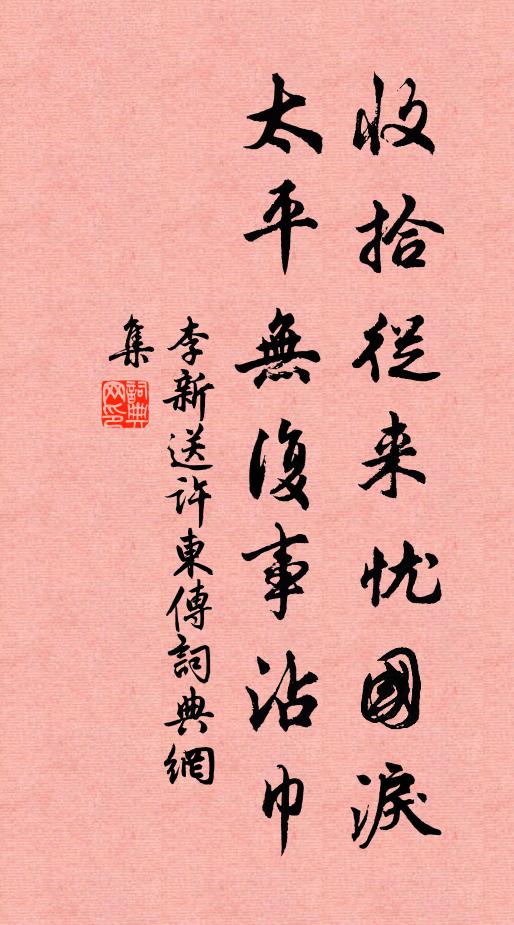 收拾從来忧國淚
太平無復事沾巾
李新送许東傳詞典網
集
詞典網印